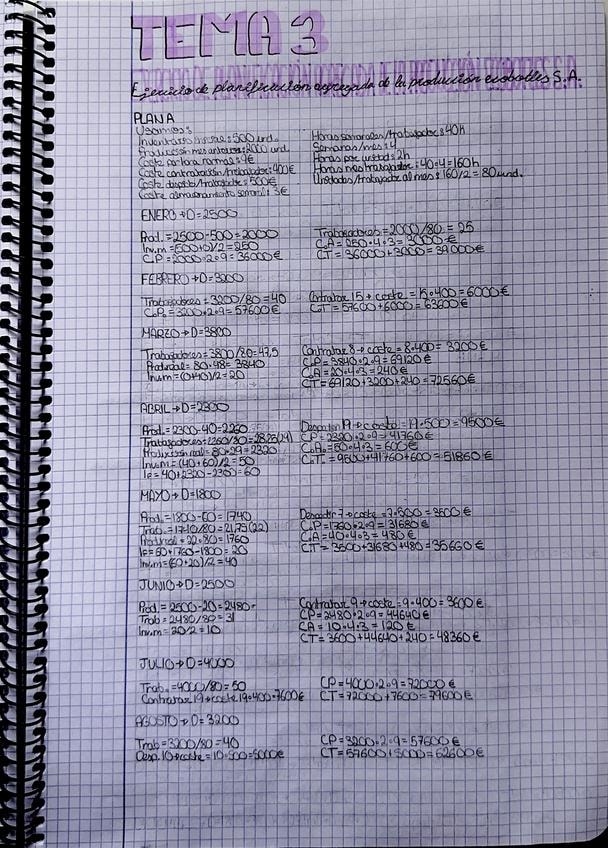 TEMA 3
Ejercicio de planificación agregada de la producción ecobottles S.A.
PLAN A
Usamos:
Inventario inicial = 500 und.
Producción mes anterior = 2000 und.
Coste por hora normal = 9€
Coste contratación/trabajador = 400€
Coste despido/trabajador = 500€
Coste almacenamiento semanal = 3€
Horas semanales/trabajador = 40h
Semanas/mes = 4
Horas por unidad = 2h
Horas mes trabajador = 40·4 = 160h
Unidades/trabajador al mes = 160/2 = 80 und.
ENERO → D=2500
Prod. = 2500-500 = 2000
Inv.m = (500+0)/2 = 250
C.P = 2000·2·9 = 36000€
Trabajadores = 2000/80 = 25
C.A = 250·4·3 = 3000€
CT = 36000+3000 = 39000€
FEBRERO → D=3200
Trabajadores = 3200/80 = 40
C.P. = 3200·2·9 = 57600€
Contratar 15 → coste = 15·400 = 6000€
C.T = 57600+6000 = 63600€
MARZO → D=3800
Trabajadores = 3800/80 = 47,5
Prod.real = 80·48 = 3840
Inv.m = (0+40)/2 = 20
Contratar 8 → coste = 8·400 = 3200€
C.P = 3840·2·9 = 69120€
C.A = 20·4·3 = 240€
CT = 69120+3200+240 = 72560€
ABRIL → D=2300
Prod. = 2300-40 = 2260
Trabajadores = 2260/80 = 28,25(29)
Producción real = 80·29 = 2320
Inv.m = (40+60)/2 = 50
I.F = 40+2320-2300 = 60
Despedir 19 → coste = 19·500 = 9500€
CP = 2320·2·9 = 41760€
C.A. = 50·4·3 = 600€
C.T. = 9500+41760+600 = 51860€
MAYO → D=1800
Prod. = 1800-60 = 1740
Trab. = 1740/80 = 21,75(22)
Prod.real = 22·80 = 1760
I.F = 60+1760-1800 = 20
Inv.m = (60+20)/2 = 40
Despedir 7 → coste = 7·500 = 3500€
C.P = 1760·2·9 = 31680€
C.A = 40·4·3 = 480€
CT = 3500+31680+480 = 35660€
JUNIO → D=2500
Prod. = 2500-20 = 2480
Trab = 2480/80 = 31
Inv.m = 20/2 = 10
Contratar 9 → coste = 9·400 = 3600€
CP = 2480·2·9 = 44640€
CA = 10·4·3 = 120€
CT = 3600+44640+240 = 48360€
JULIO → D=4000
Trab. = 4000/80 = 50
Contratar 19 → coste 19·400 = 7600€
CP = 4000·2·9 = 72000€
CT = 72000+7600 = 79600€
AGOSTO → D=3200
Trab = 3200/80 = 40
Desp. 10 → coste = 10·500 = 5000€
CP = 3200·2·9 = 57600€
CT = 57600+5000 = 62600€